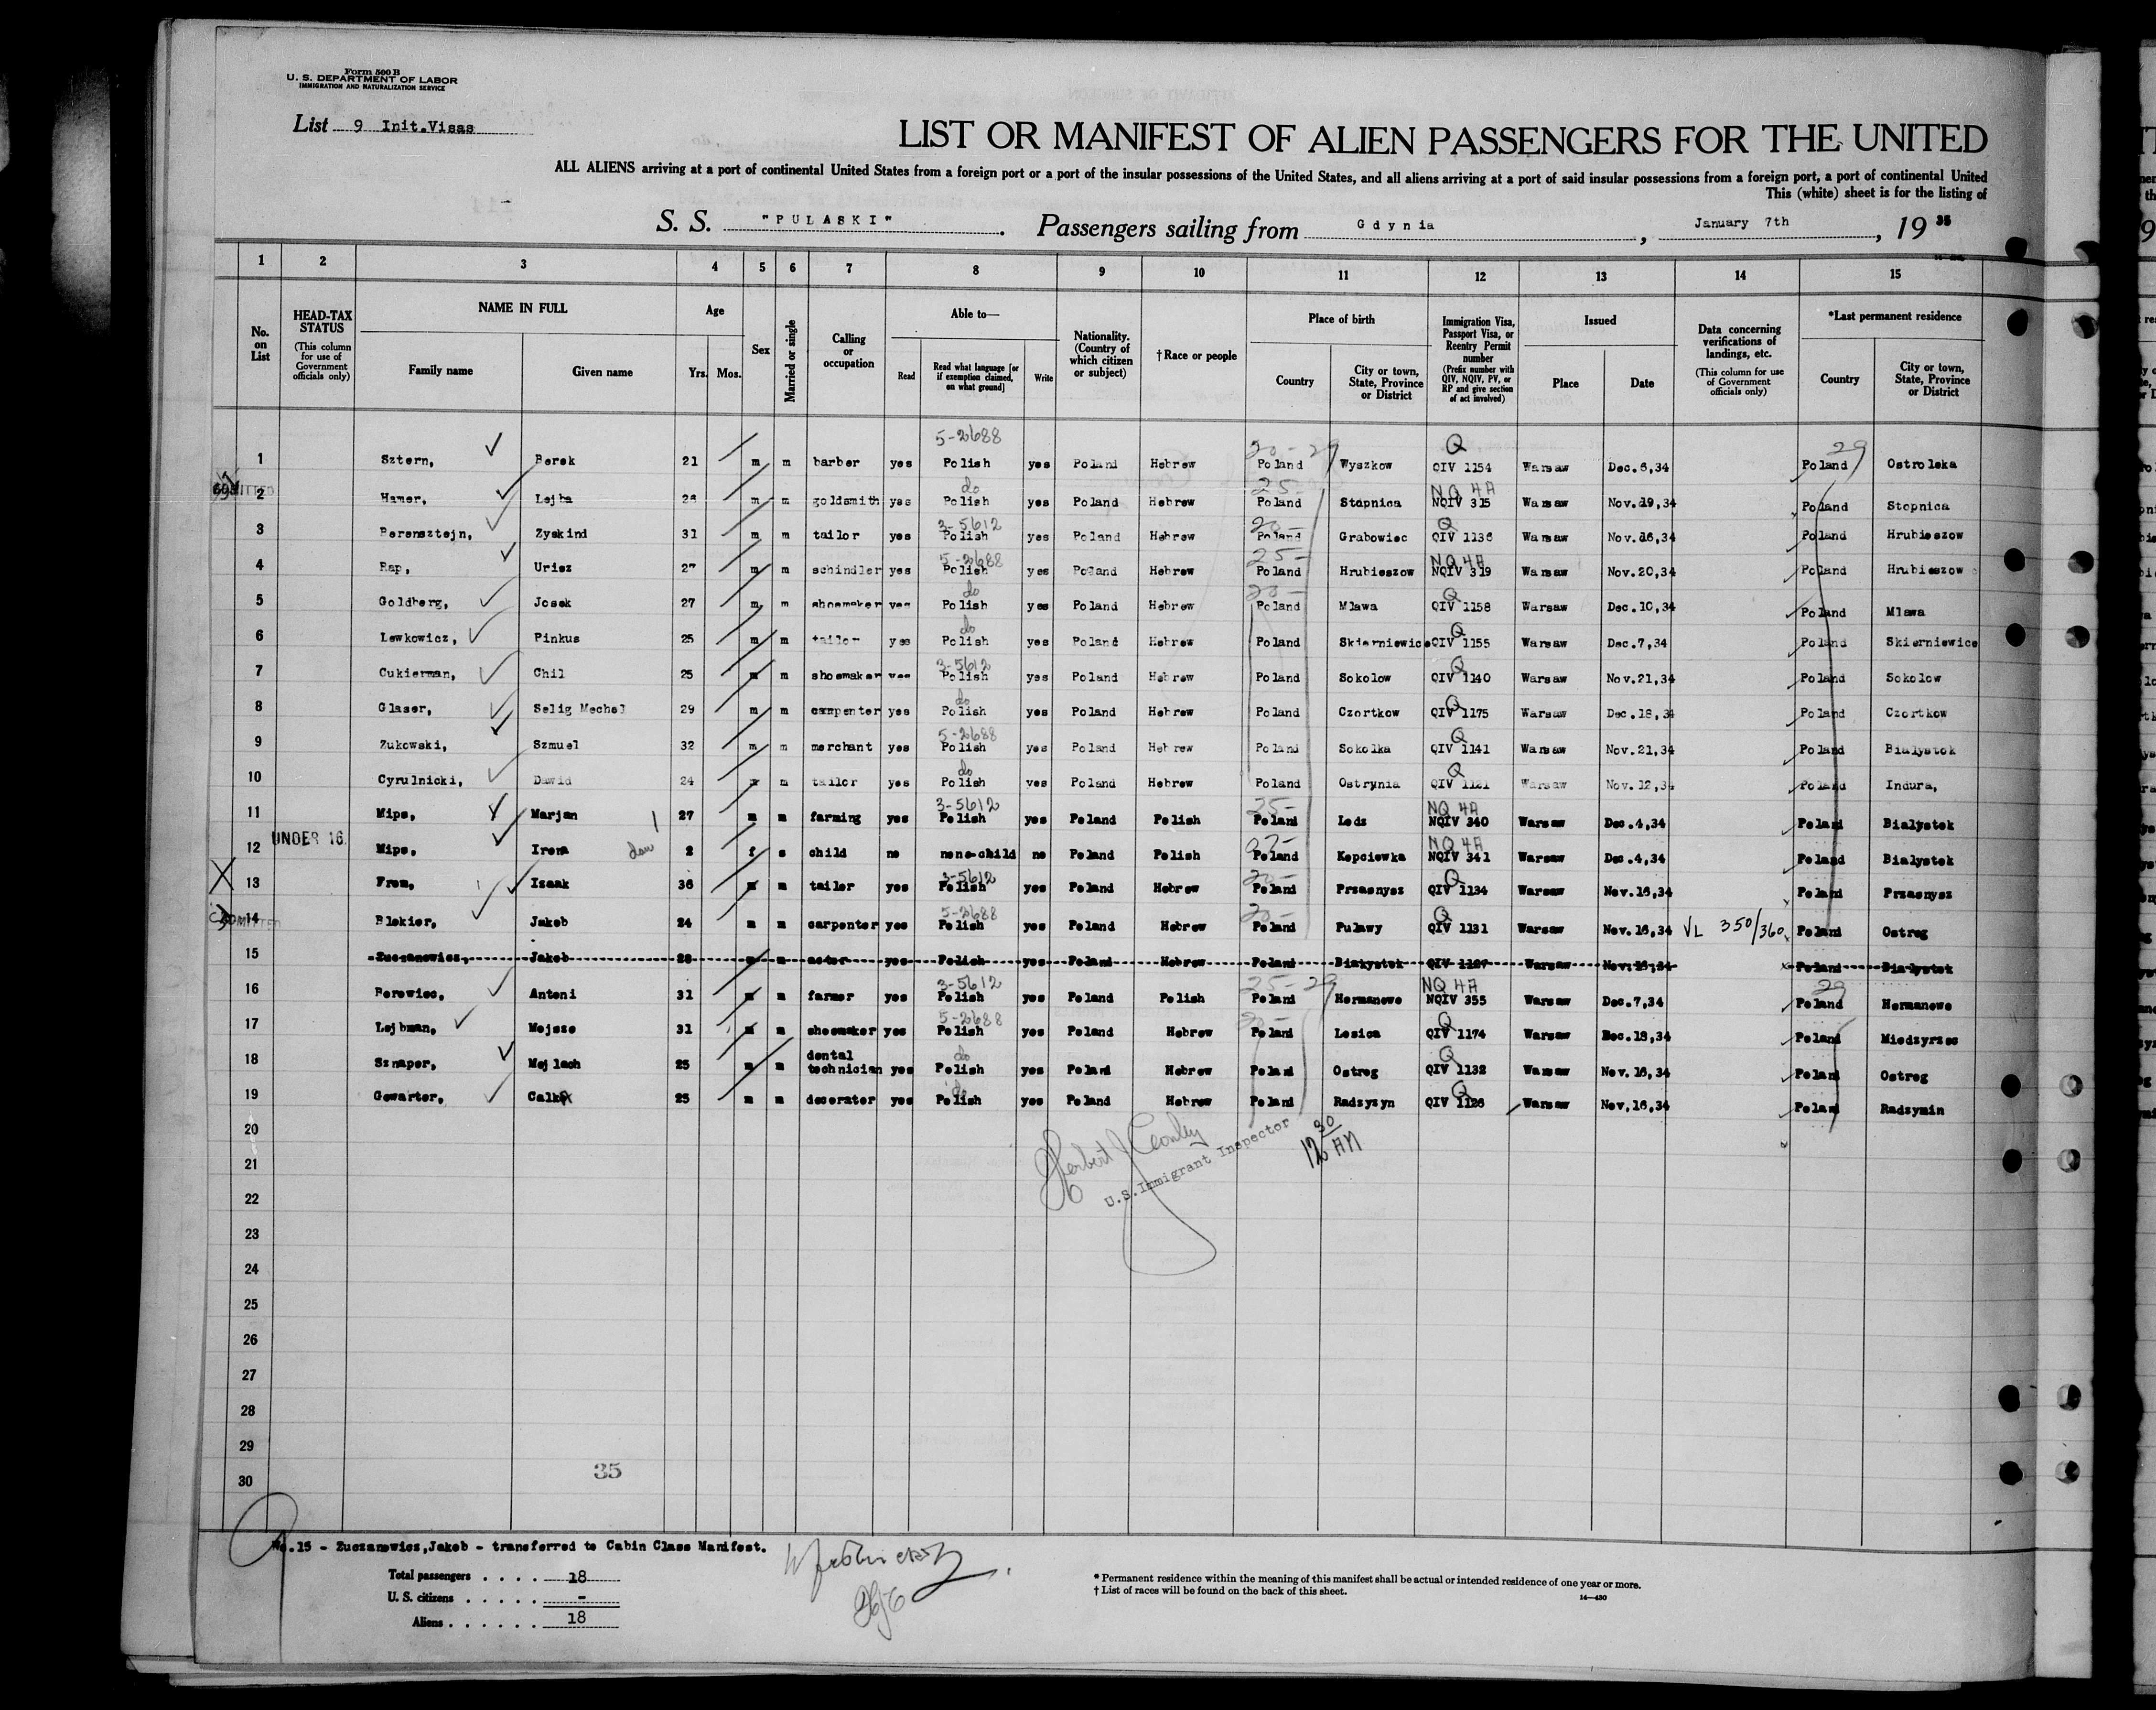 Form 500 B
U. S. DEPARTMENT OF LABOR
IMMIGRATION AND NATURALIZATION SERVICE
List 9 Init.Visas
LIST OR MANIFEST OF ALIEN PASSENGERS FOR THE UNITED
ALL ALIENS arriving at a port of continental United States from a foreign port or a port of the insular possessions of the United States, and all aliens arriving at a port of said insular possessions from a foreign port, a port of continental United
This (white) sheet is for the listing of
S. S. "PULASKI" . Passengers sailing from Gdynia , January 7th , 19 35
1 2 3 4 5 6 7 8 9 10 11 12 13 14 15
No. on List
HEAD-TAX STATUS (This column for use of Government officials only)
NAME IN FULL
Family name Given name
Age
Yrs. Mos.
Sex
Married or single
Calling or occupation
Able to—
Read Read what language [or if exemption claimed, on what ground] Write
Nationality. (Country of which citizen or subject)
† Race or people
Place of birth
Country City or town, State, Province or District
Immigration Visa, Passport Visa, or Reentry Permit number (Prefix number with QIV, NQIV, PV, or RP and give section of act involved)
Issued
Place Date
Data concerning verifications of landings, etc. (This column for use of Government officials only)
*Last permanent residence
Country City or town, State, Province or District
5-2688 20-29 Q 29
1 Sztern, Berek 21 m m barber yes Polish yes Poland Hebrew Poland Wyszkow QIV 1154 Warsaw Dec.6,34 Poland Ostroleka
do 25- NQ 4A
2 Hamer, Lejba 26 m m goldsmith yes Polish yes Poland Hebrew Poland Stopnica NQIV 315 Warsaw Nov.19,34 Poland Stopnica
3-5612 20- Q
3 Berensztejn, Zyskind 31 m m tailor yes Polish yes Poland Hebrew Poland Grabowiec QIV 1136 Warsaw Nov.16,34 Poland Hrubieszow
5-2688 25- NQ 4A
4 Rap, Urisz 27 m m schindler yes Polish yes Poland Hebrew Poland Hrubieszow NQIV 319 Warsaw Nov.20,34 Poland Hrubieszow
do 20- Q
5 Goldberg, Josek 27 m m shoemaker yes Polish yes Poland Hebrew Poland Mlawa QIV 1158 Warsaw Dec.10,34 Poland Mlawa
do Q
6 Lewkowicz, Pinkus 25 m m tailor yes Polish yes Poland Hebrew Poland Skierniewice QIV 1155 Warsaw Dec.7,34 Poland Skierniewice
3-5612 Q
7 Cukierman, Chil 25 m m shoemaker yes Polish yes Poland Hebrew Poland Sokolow QIV 1140 Warsaw Nov.21,34 Poland Sokolow
do Q
8 Glaser, Selig Mechel 29 m m carpenter yes Polish yes Poland Hebrew Poland Czortkow QIV 1175 Warsaw Dec.18,34 Poland Czortkow
5-2688 Q
9 Zukowski, Szmuel 32 m m merchant yes Polish yes Poland Hebrew Poland Sokolka QIV 1141 Warsaw Nov.21,34 Poland Bialystok
do Q
10 Cyrulnicki, Dawid 24 m m tailor yes Polish yes Poland Hebrew Poland Ostrynia QIV 1121 Warsaw Nov.12,34 Poland Indura,
3-5612 25- NQ 4A
11 Mips, Marjan 27 m m farming yes Polish yes Poland Polish Poland Lodz NQIV 340 Warsaw Dec.4,34 Poland Bialystok
UNDER 16 NQ 4A
12 Mips, Irena 2 f s child no none-child no Poland Polish Poland Kopciowka NQIV 341 Warsaw Dec.4,34 Poland Bialystok
3-5612 20- Q
13 From, Izaak 36 m m tailor yes Polish yes Poland Hebrew Poland Przasnysz QIV 1134 Warsaw Nov.16,34 Poland Przasnysz
5-2688 20- Q
14 Blekier, Jakob 24 m m carpenter yes Polish yes Poland Hebrew Poland Pulawy QIV 1131 Warsaw Nov.16,34 VL 350/360 Poland Ostrog
15 Zuczanowicz, Jakob 28 m m actor yes Polish yes Poland Hebrew Poland Bialystok QIV 1127 Warsaw Nov.16,34 Poland Bialystok
3-5612 25-29 NQ 4A 29
16 Borowiec, Antoni 31 m m farmer yes Polish yes Poland Polish Poland Hermanowo NQIV 355 Warsaw Dec.7,34 Poland Hermanowo
5-2688 Q
17 Lejbman, Mojsze 31 m m shoemaker yes Polish yes Poland Hebrew Poland Losica QIV 1174 Warsaw Dec.18,34 Poland Miedzyrzec
do Q
18 Sznaper, Mejlach 25 m m dental technician yes Polish yes Poland Hebrew Poland Ostrog QIV 1132 Warsaw Nov.16,34 Poland Ostrog
do Q
19 Gewarter, Calka 25 m m decorator yes Polish yes Poland Hebrew Poland Radzyzyn QIV 1126 Warsaw Nov.16,34 Poland Radzymin
20
U.S.Immigrant Inspector
12 30 AM
21
22
23
24
25
26
27
28
29
30
35
No.15 - Zuczanowicz,Jakob - transferred to Cabin Class Manifest.
Total passengers . . . . 18
U. S. citizens . . . . . -
Aliens . . . . . . 18
* Permanent residence within the meaning of this manifest shall be actual or intended residence of one year or more.
† List of races will be found on the back of this sheet.
14—430